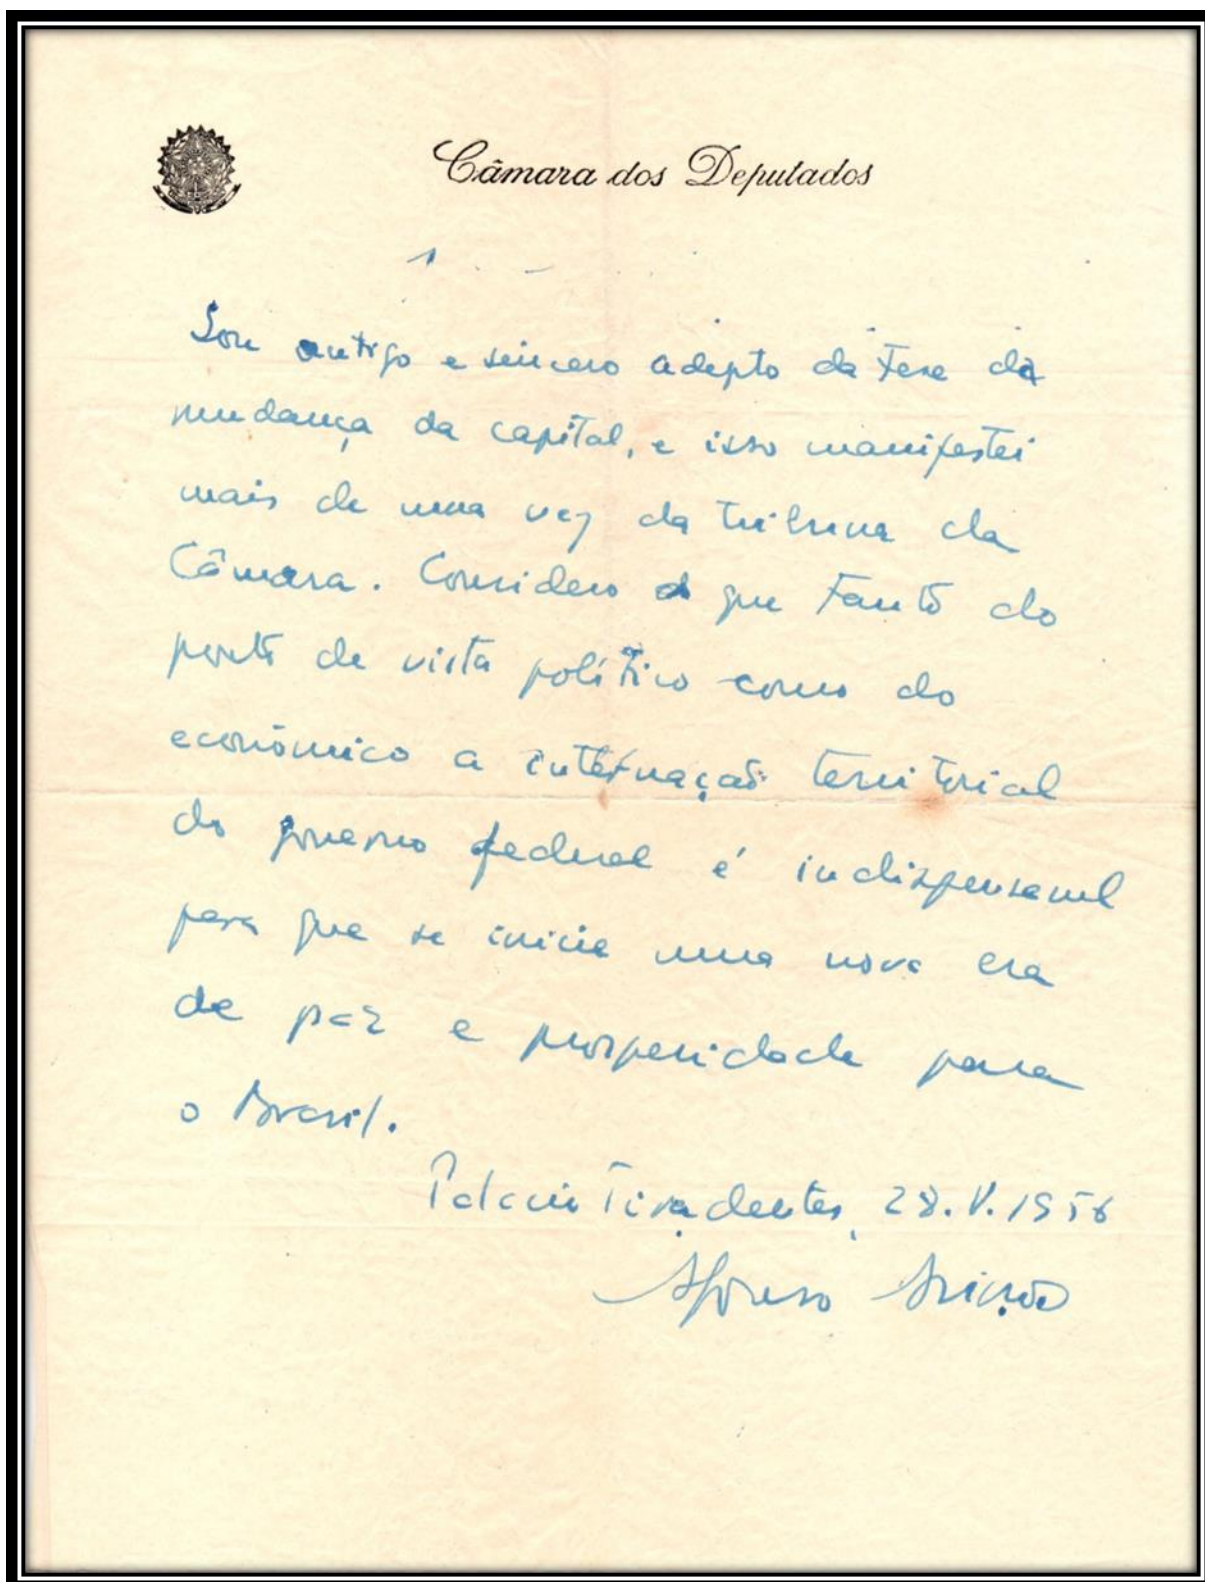 Câmara dos Deputados
Sou antigo e sincero adepto da tese da
mudança da capital, e isso manifestei
mais de uma vez da tribuna da
Câmara. Considero que tanto do
ponto de vista político como do
econômico a internação territorial
do governo federal é indispensavel
para que se inicie uma nova era
de paz e prosperidade para
o Brasil.
Palacio Tiradentes, 28.V.1956
Afonso Arinos